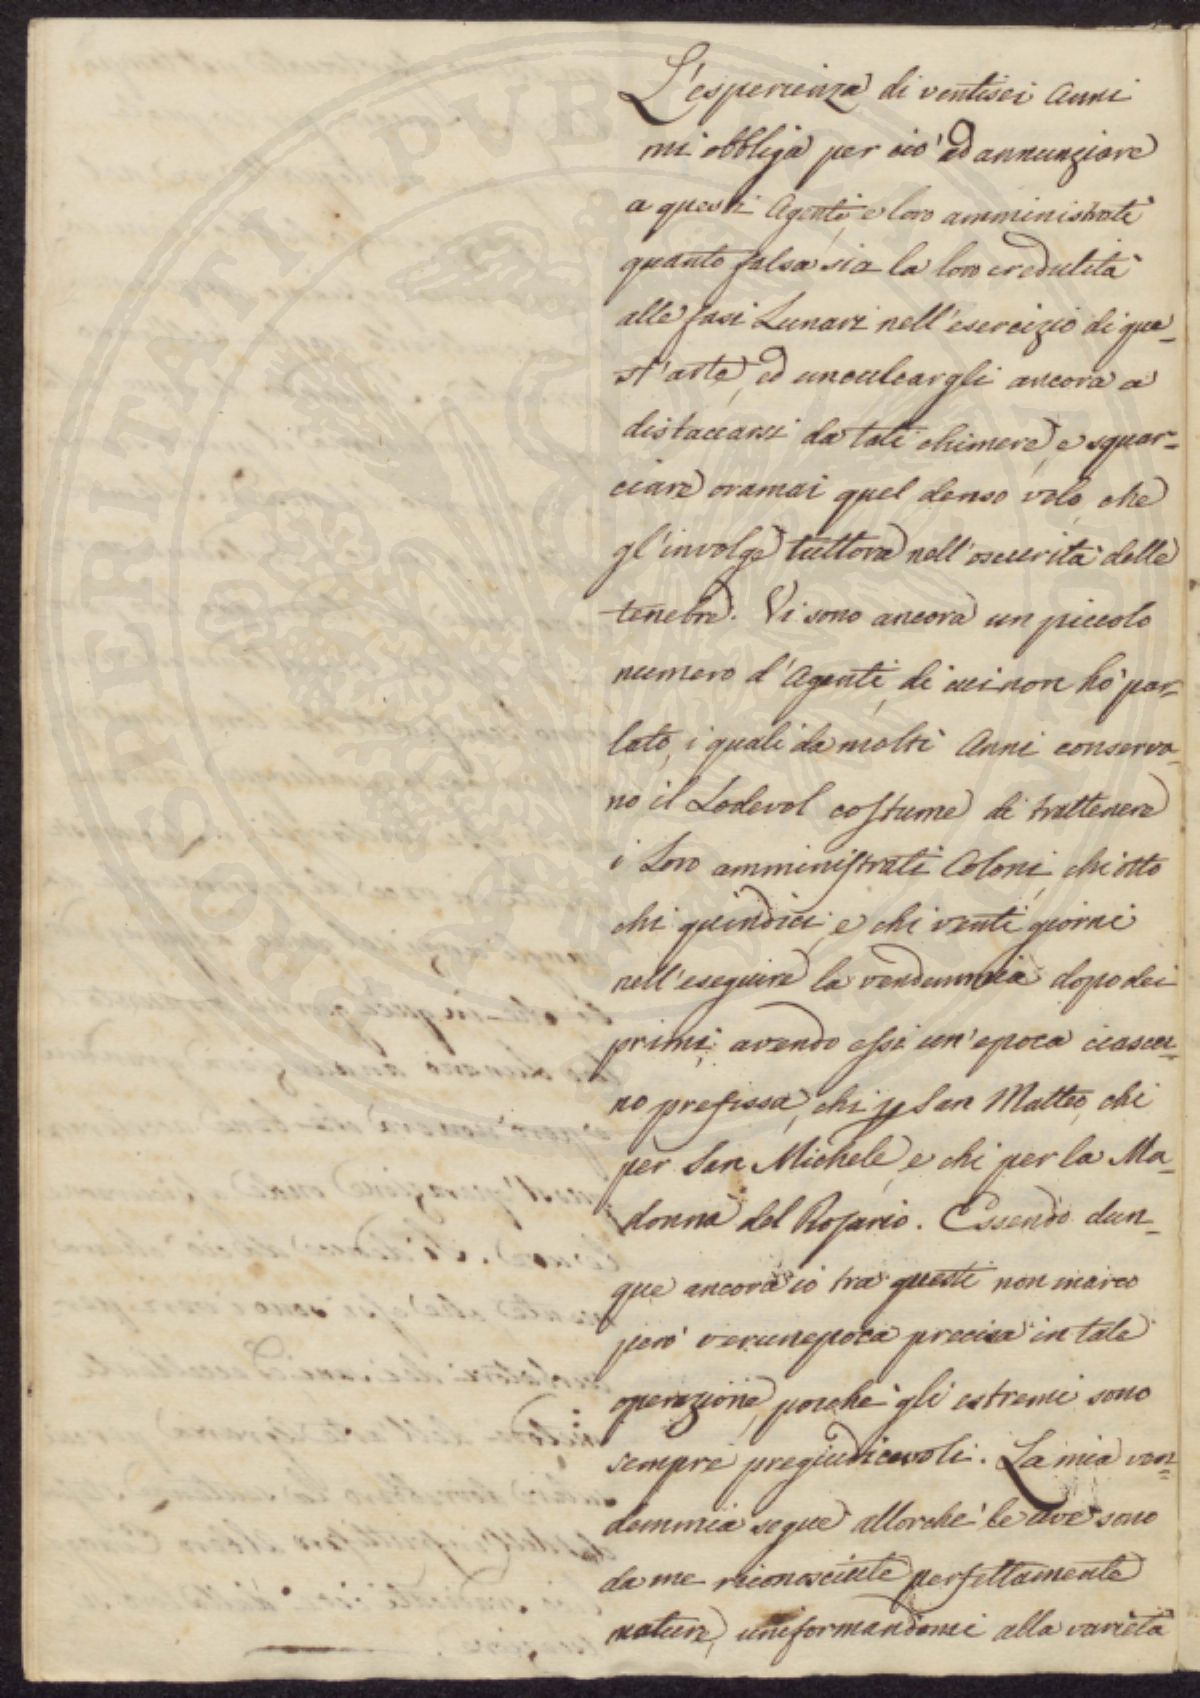 L'esperienza di ventisei Anni
mi obbliga per ciò ad annunziare
a questi Agenti, e loro amministrati
quanto falsa sia la loro credulità
alle fasi Lunari nell'esercizio di que=
st'arte, ed inculcargli ancora a
distaccarsi da tali chimere, e squar=
ciare oramai quel denso velo, che
gl'involge tuttora nell'oscurità delle
tenebre. Vi sono ancora un piccolo
numero d'Agenti, di cui non hò par=
lato, i quali da molti Anni conserva=
no il Lodevol costume di trattenere
i Loro amministrati Coloni, chi otto
chi quindici, e chi venti giorni
nell'eseguire la vendemmia dopo dei
primi, avendo essi un'epoca ciascu=
no prefissa, chi p San Matteo, chi
per San Michele, e chi per la Ma=
donna del Rosario. Essendo dun=
que ancora io tra questi non marco
però verun epoca precisa in tale
operazione, perchè gli estremi sono
sempre pregiudicevoli. La mia ven=
demmia segue allorchè le uve sono
da me riconosciute perfettamente
mature, uniformandomi alla varietà
POSPERITATI PUBLICAE